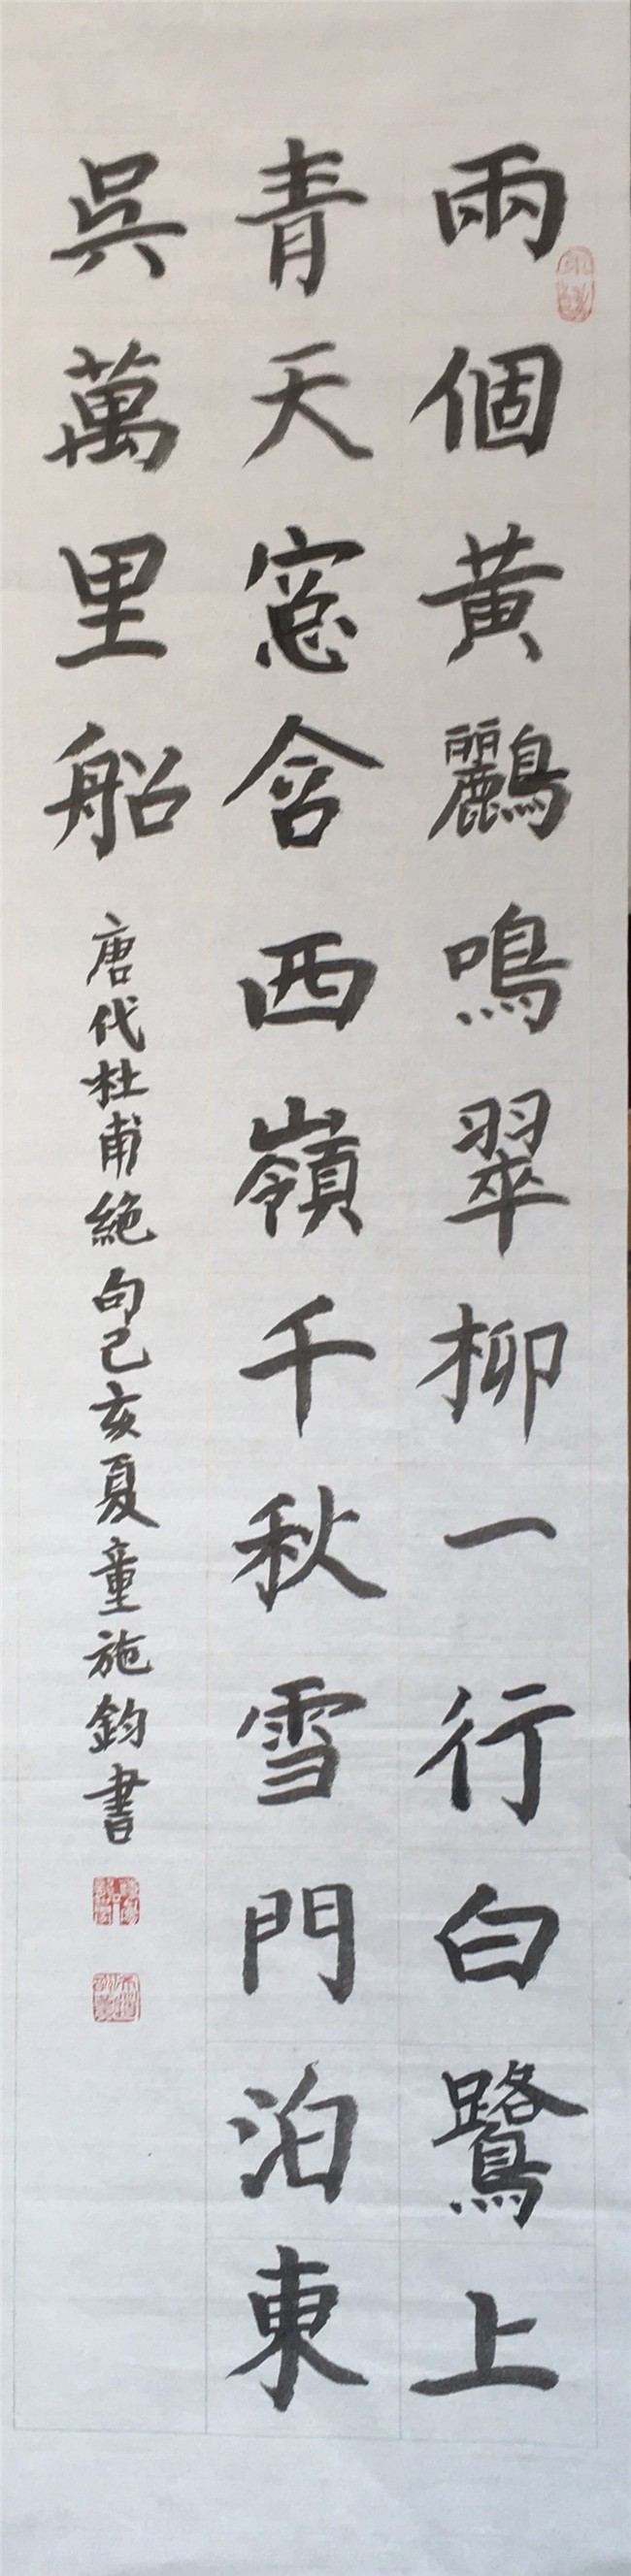 兩個黃鸝鳴翠柳一行白鷺上
青天窓含西嶺千秋雪門泊東
吳萬里船
唐代杜甫絶句己亥夏童施鈞書